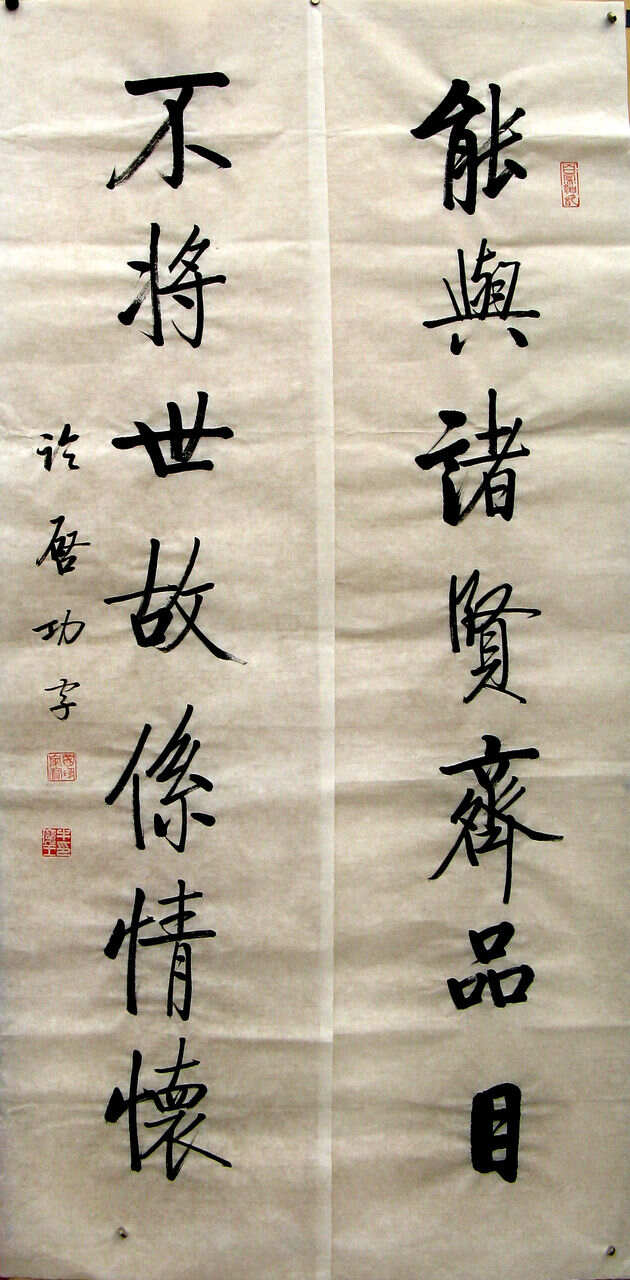 能與諸賢齊品目
不將世故係情懷
啓功字